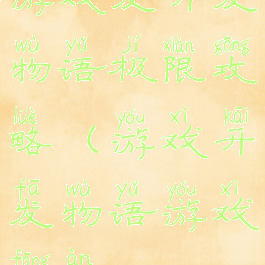 游戏发开发
wù yǔ jí xiàn gōng
物语极限攻
lüè yóu xì kāi
略（游戏开
fā wù yǔ yóu xì
发物语游戏